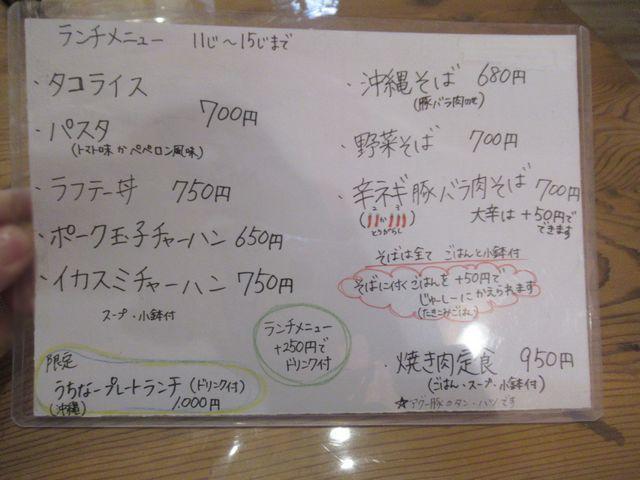 ランチメニュー 11じ～15じまで
・タコライス
700円
・パスタ
(トマト味かペペロン風味)
・ラフテー丼 750円
・ポーク玉子チャーハン 650円
・イカスミチャーハン 750円
スープ・小鉢付
ランチメニュー
+250円で
ドリンク付
限定
うちなープレートランチ (ドリンク付)
(沖縄) 1,000円
・沖縄そば 680円
(豚バラ肉のせ)
・野菜そば 700円
・辛ネギ豚バラ肉そば 700円
2 か 3
とうがらし
大辛は+50円で
できます
そばは全て ごはんと小鉢付
そばに付くごはんを+50円で
じゅーしーにかえられます
(たきこみごはん)
・焼き肉定食 950円
(ごはん・スープ・小鉢付)
☆アグー豚のタン・ハツです